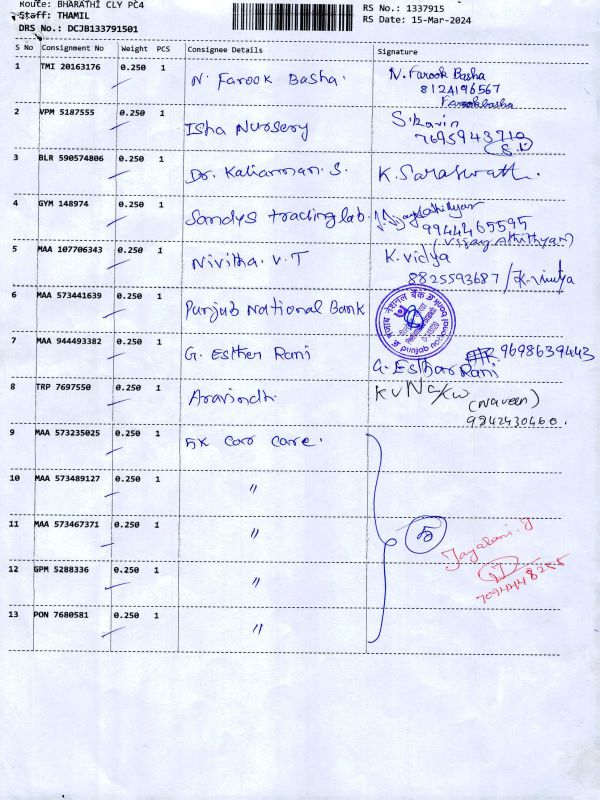 Route: BHARATHI CLY PC4
Staff: THAMIL
DRS No.: DCJB133791501
RS No.: 1337915
RS Date: 15-Mar-2024
S No Consignment No Weight PCS Consignee Details Signature
1 TMI 20163176 0.250 1 N. Farook Basha. N. Farook Basha
8124196567
Farookbasha
2 VPM 5187555 0.250 1 Isha Nursery
3 BLR 590574806 0.250 1 Dr. Kaliamman. S.
4 GYM 148974 0.250 1 Sandys tracing lab.
9944465595
(Vijay Athithyan)
5 MAA 107706343 0.250 1 Nivitha. V. T K. vidya
8825593687
6 MAA 573441639 0.250 1 Punjub National Bank
पंजाब नैशनल बैंक punjab national bank
7 MAA 944493382 0.250 1 G. Esther Rani 9698639443
G. Esther Rani
8 TRP 7697550 0.250 1 Aravindh.
(Naveen)
9842430460.
9 MAA 573235025 0.250 1 5K Car Care.
10 MAA 573489127 0.250 1 "
11 MAA 573467371 0.250 1 " 5
12 GPM 5288336 0.250 1 "
13 PON 7680581 0.250 1 "